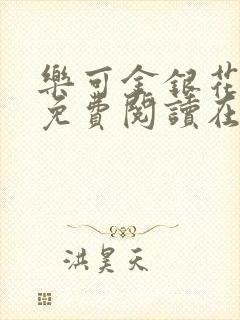 樂可金銀花
免費閱讀在
洪昊天